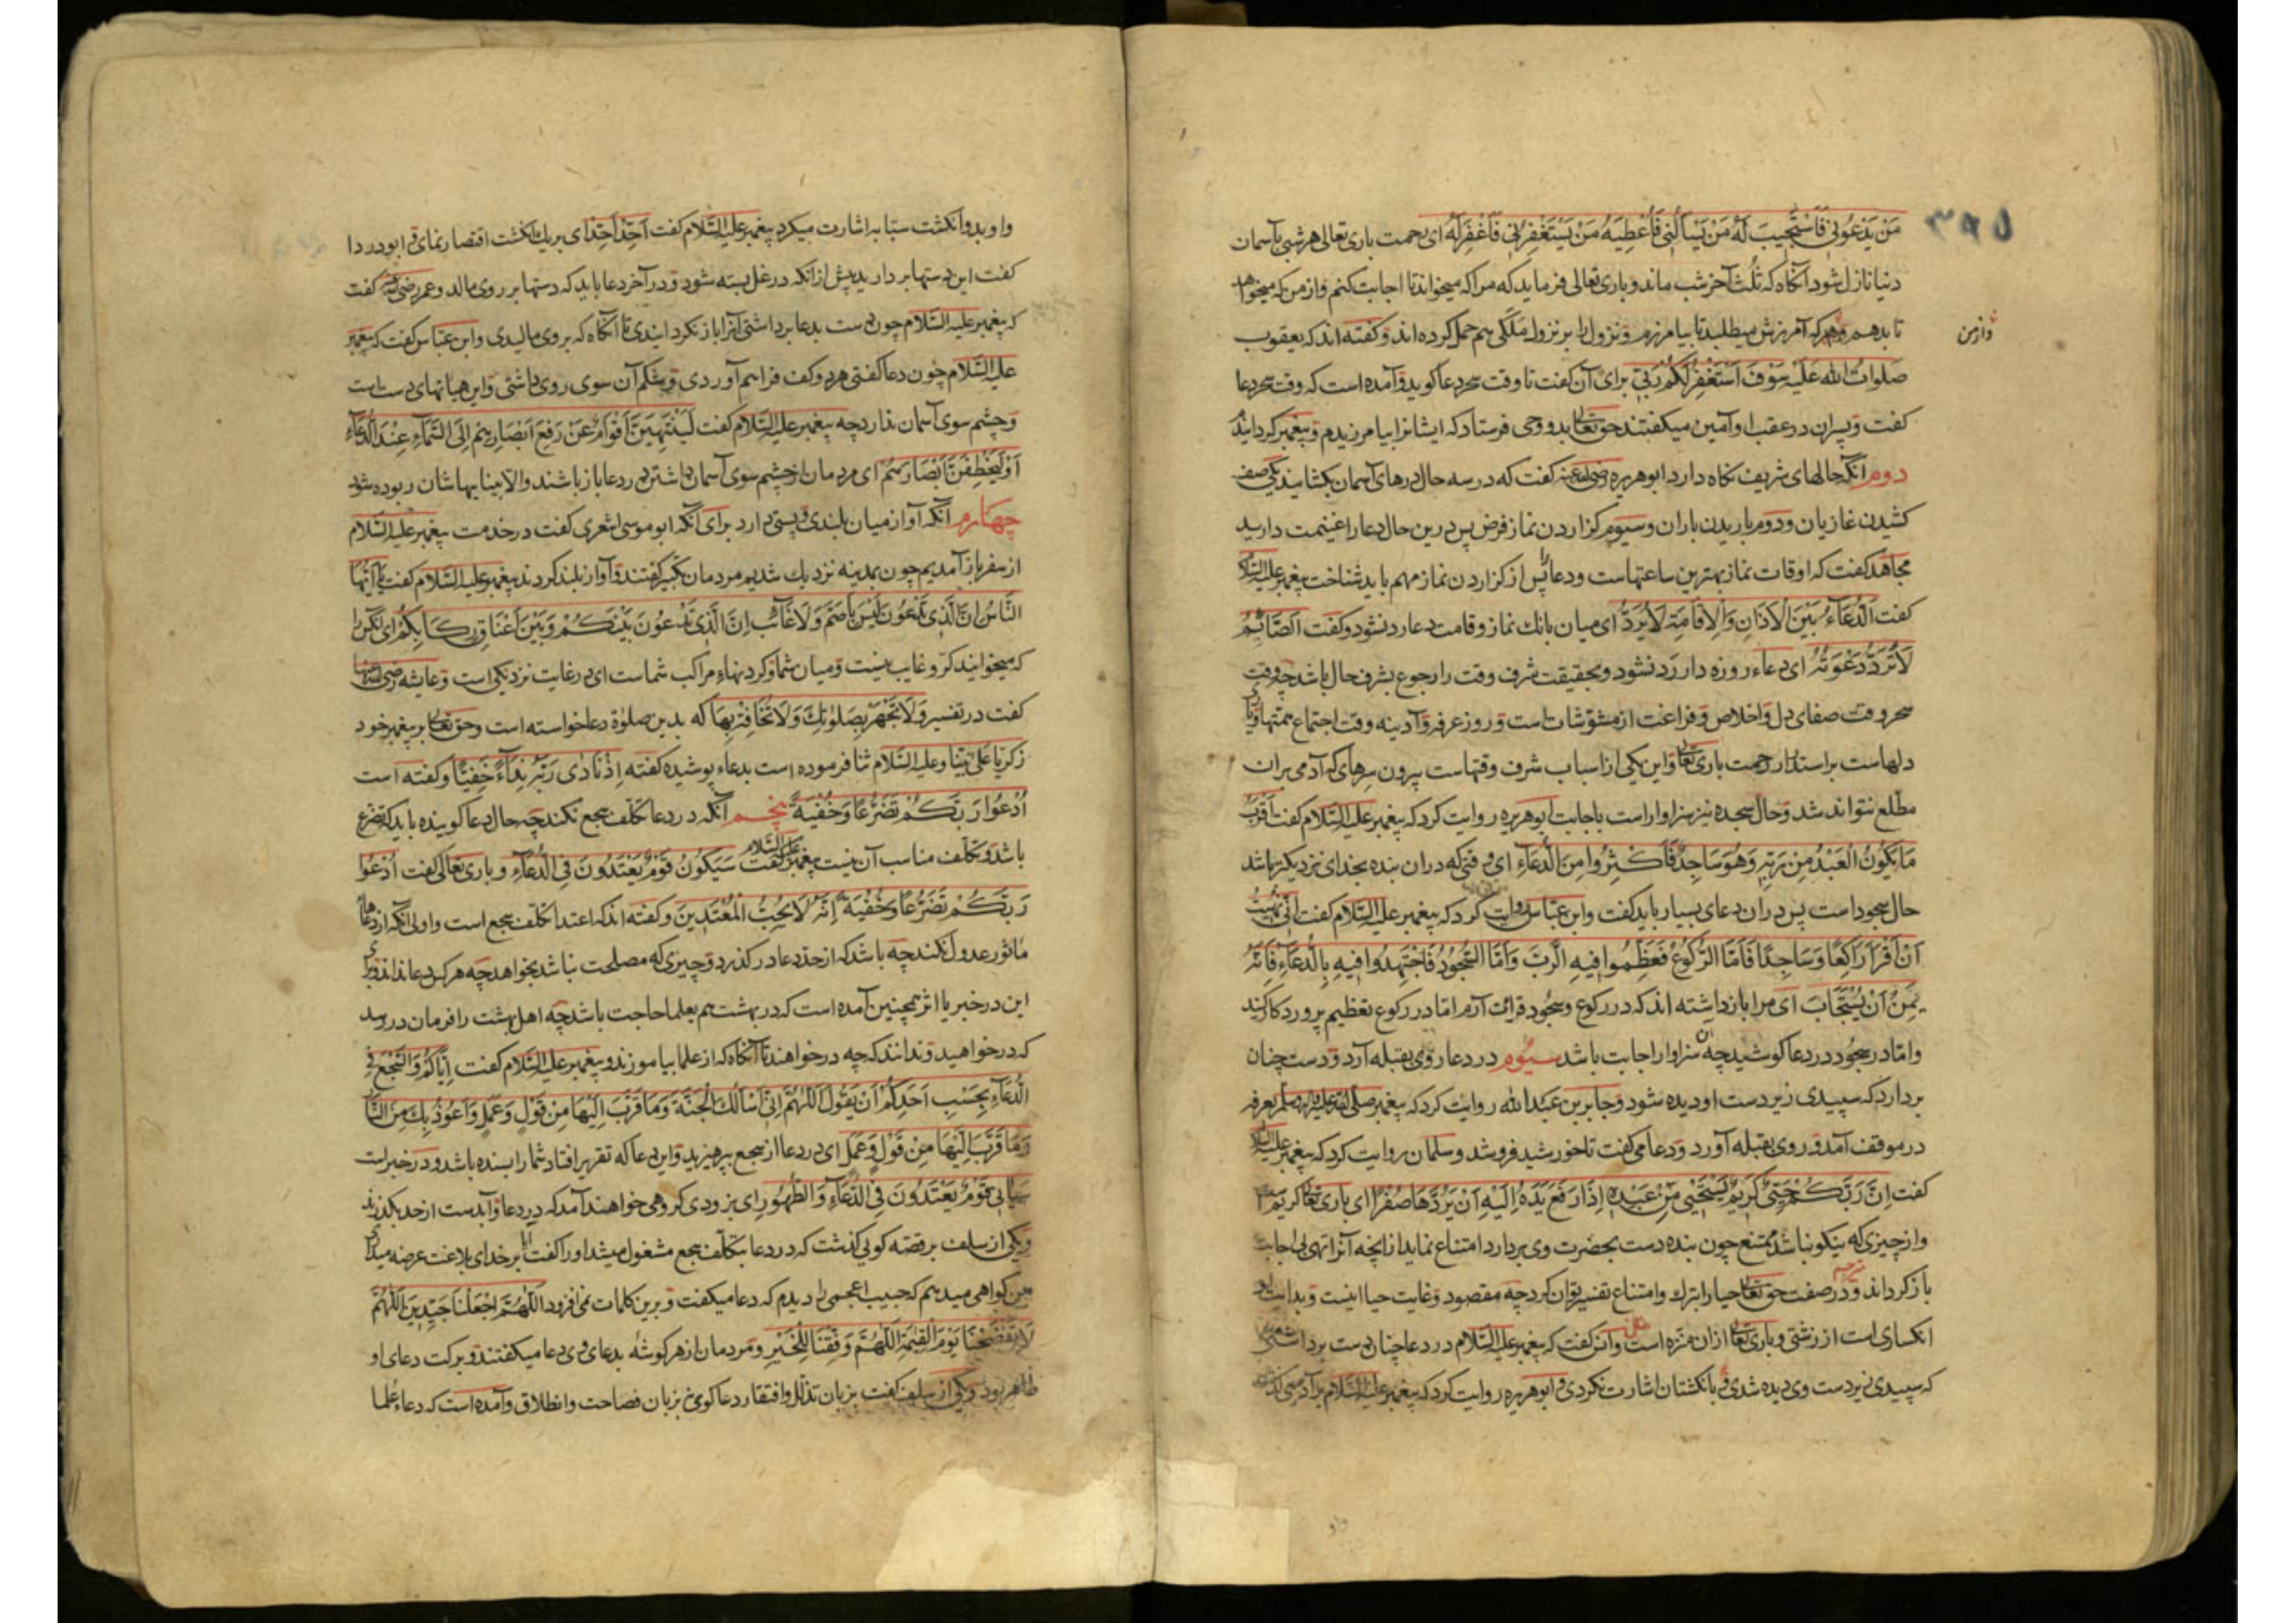 ۳۹۵
مَنْ يَدْعُونِي فَأَسْتَجِيبَ لَهُ مَنْ يَسْأَلُنِي فَأُعْطِيَهُ مَنْ يَسْتَغْفِرُنِي فَأَغْفِرَلَهُ ای رحمت باری تعالی هر شبی بآسمان
دنیا نازل شود آنگاه که ثلث آخر شب ماند و باری تعالی فرماید که مرا که میخواند تا اجابت کنم و از من که میخواهد
وازمن
تا بدهم و هرکه آمرزش میطلبد تا بیامرزم و نزول را بر نزول ملکی هم حمل کرده اند و گفته اند که یعقوب
صلوات الله علیه سَوْفَ أَسْتَغْفِرُ لَكُمْ رَبِّي برای آن گفت تا وقت سحر دعا گوید و آمده است که وقت سحر دعا
گفت و پسران در عقب او آمین میگفتند حق تعالی بدو وحی فرستاد که ایشانرا بیامرزیدم و پیغمبر گردانید
دوم آنکه حالهای شریف نگاه دارد ابوهریره رضی الله عنه گفت که در سه حال درهای آسمان بگشایند یکی صف
کشیدن غازیان و دوم باریدن باران و سیوم گزاردن نماز فرض پس درین حال دعا را غنیمت دارید
مجاهد گفت که اوقات نماز بهترین ساعتهاست و دعا پس از گزاردن نماز مهم باید شناخت پیغمبر علیه السلام
گفت الدُّعَاءُ بَيْنَ الْأَذَانِ وَالْإِقَامَةِ لَا يُرَدُّ ای میان بانك نماز و قامت دعا رد نشود و گفت الصَّائِمُ
لَا تُرَدُّ دَعْوَتُهُ ای دعاء روزه دار رد نشود و بحقیقت شرف وقت را رجوع بشرف حال باشد چه وقت
سحر وقت صفای دل و اخلاص و فراغت از مشوّشات است و روز عرفه و آدینه وقت اجتماع همتها و
دلهاست بر استدرار رحمت باری تعالی و این یکی از اسباب شرف وقتهاست بیرون سرهای که آدمی بران
مطلع نتواند شد و حال سجده نیز سزاوار است باجابت ابوهریره روایت کرد که پیغمبر علیه السلام گفت أَقْرَبُ
مَا يَكُونُ الْعَبْدُ مِنْ رَبِّهِ وَهُوَ سَاجِدٌ فَأَكْثِرُوا مِنَ الدُّعَاءِ ای وقتی که دران بنده بخدای نزدیکتر باشد
حال سجود است پس دران دعای بسیار باید گفت و ابن عباس روایت کرد که پیغمبر علیه السلام گفت إِنِّي نُهِيتُ
أَنْ أَقْرَأَ رَاكِعًا وَسَاجِدًا فَأَمَّا الرُّكُوعُ فَعَظِّمُوا فِيهِ الرَّبَّ وَأَمَّا السُّجُودُ فَاجْتَهِدُوا فِيهِ بِالدُّعَاءِ فَإِنَّهُ
أَنْ يُسْتَجَابَ ای مرا باز داشته اند که در رکوع و سجود قرائت آرم اما در رکوع تعظیم پروردگار کنید
و اما در سجود در دعا کوشید چه آن سزاوار اجابت باشد سیوم در دعا روی بقبله آرد و دست چنان
بردارد که سپیدی زیر دست او دیده شود و جابر بن عبد الله روایت کرد که پیغمبر صلی الله علیه و سلم بعرفه
در موقف آمد و روی بقبله آورد و دعا می گفت تا خورشید فرو شد و سلمان روایت کرد که پیغمبر علیه السلام
گفت إِنَّ رَبَّكُمْ حَيِيٌّ كَرِيمٌ يَسْتَحْيِي مِنْ عَبْدِهِ إِذَا رَفَعَ يَدَهُ إِلَيْهِ أَنْ يَرُدَّهَا صُفْرًا ای باری تعالی کریم است
و از چیزی که نیکو نباشد ممتنع چون بنده دست بحضرت وی بردارد امتناع نماید از آنچه آنرا تهی بی اجابت
باز گرداند و در صفت حق تعالی حیا را بترك و امتناع تفسیر توان کرد چه مقصود و غایت حیا اینست و بدایت او
انکساری است از زشتی و باری تعالی ازان منزه است و انس گفت که پیغمبر علیه السلام در دعا چنان دست برداشتی
که سپیدی زیر دست وی دیده شدی و بانگشتان اشارت نکردی و ابوهریره روایت کرد که پیغمبر علیه السلام بر آدمیی گذشت
واو
و او بدو انگشت سبّابه اشارت میکرد پیغمبر علیه السلام گفت أَحِّدْ أَحِّدْ ای بر یك انگشت اقتصار نمای و ابودردا
گفت این دستها بردارید پیش از آنکه در غل بسته شود و در آخر دعا باید که دستها بر روی مالد و عمر رضی الله عنه گفت
که پیغمبر علیه السلام چون دست بدعا برداشتی آنرا باز نگردانیدی تا آنگاه که بروی مالیدی و ابن عباس گفت که پیغمبر
علیه السلام چون دعا گفتی هر دو کف فراهم آوردی و شکم آن سوی روی داشتی و این هیاتهای دست است
و چشم سوی آسمان ندارد چه پیغمبر علیه السلام گفت لَيَنْتَهِيَنَّ أَقْوَامٌ عَنْ رَفْعِ أَبْصَارِهِمْ إِلَى السَّمَاءِ عِنْدَ الدُّعَاءِ
أَوْ لَيَخْطِفَنَّ أَبْصَارَهُمْ ای مردمان از چشم سوی آسمان داشتن در دعا باز باشند و الا بینایهاشان ربوده شود
چهارم آنکه آواز میان بلندی و پستی دارد برای آنکه ابو موسی اشعری گفت در خدمت پیغمبر علیه السلام
از سفر باز آمدیم چون بمدینه نزدیك شدیم مردمان تکبیر گفتند و آواز بلند کردند پیغمبر علیه السلام گفت يَا أَيُّهَا
النَّاسُ إِنَّ الَّذِي تَدْعُونَ لَيْسَ بِأَصَمَّ وَلَا غَائِبٍ إِنَّ الَّذِي تَدْعُونَ بَيْنَكُمْ وَبَيْنَ أَعْنَاقِ رِكَابِكُمْ ای آنکس را
که میخوانید کر و غایب نیست و میان شما و گردنهاء مراکب شماست ای در غایت نزدیکی است و عایشه رضی الله عنها
گفت در تفسیر وَلَا تَجْهَرْ بِصَلَوٰتِكَ وَلَا تُخَافِتْ بِهَا که بدین صلوة دعا خواسته است و حق تعالی بر پیغمبر خود
زکریا علی نبینا و علیه السلام ثنا فرموده است بدعاء پوشیده گفته إِذْ نَادَى رَبَّهُ نِدَاءً خَفِيًّا و گفته است
أُدْعُوا رَبَّكُمْ تَضَرُّعًا وَخُفْيَةً پنجم آنکه در دعا تکلف سجع نکند چه حال دعا گوینده باید که تضرع
باشد و تکلف مناسب آن نیست پیغمبر علیه السلام گفت سَيَكُونُ قَوْمٌ يَعْتَدُونَ فِي الدُّعَاءِ و باری تعالی گفت أُدْعُوا
رَبَّكُمْ تَضَرُّعًا وَخُفْيَةً إِنَّهُ لَا يُحِبُّ الْمُعْتَدِينَ و گفته اند که اعتدا تکلف سجع است و اولی آنکه از دعاهاء
مأثور عدول نکند چه باشد که از حد دعا در گذرد و چیزی که مصلحت نباشد بخواهد چه هر کس دعا نداند و برای
این در خبر یا اثر همچنین آمده است که در بهشت هم بعلما حاجت باشد چه اهل بهشت را فرمان در رسد
که درخواهید و ندانند که چه درخواهند تا آنگاه که از علما بیاموزند و پیغمبر علیه السلام گفت إِيَّاكُمْ وَالسَّجْعَ فِي
الدُّعَاءِ بِحَسْبِ أَحَدِكُمْ أَنْ يَقُولَ اللَّهُمَّ إِنِّي أَسْأَلُكَ الْجَنَّةَ وَمَا قَرَّبَ إِلَيْهَا مِنْ قَوْلٍ وَعَمَلٍ وَأَعُوذُ بِكَ مِنَ النَّارِ
وَمَا قَرَّبَ إِلَيْهَا مِنْ قَوْلٍ وَعَمَلٍ ای در دعا از سجع بپرهیزید و این دعا که تقریر افتاد شما را بسنده باشد و در خبر است
سَيَأْتِي قَوْمٌ يَعْتَدُونَ فِي الدُّعَاءِ وَالطُّهُورِ ای بزودی گروهی خواهند آمد که در دعا و آبدست از حد بگذرند
و یکی از سلف بر قصه گویی گذشت که در دعا بتکلف سجع مشغول میشد او را گفت آیا بر خدای بلاغت عرضه میداری
من گواهی میدهم که حبیب اعجمی را دیدم که دعا میگفت و برین کلمات نمی افزود اللَّهُمَّ اجْعَلْنَا جَيِّدِينَ اللَّهُمَّ
لَا تَفْضَحْنَا يَوْمَ الْقِيٰمَةِ اللَّهُمَّ وَفِّقْنَا لِلْخَيْرِ و مردمان از هر گوشه بدعای وی دعا میگفتند و برکت دعای او
ظاهر بود و یکی از سلف گفت بزبان تذلل و افتقار دعا گوی نه بزبان فصاحت و انطلاق و آمده است که دعاء علما